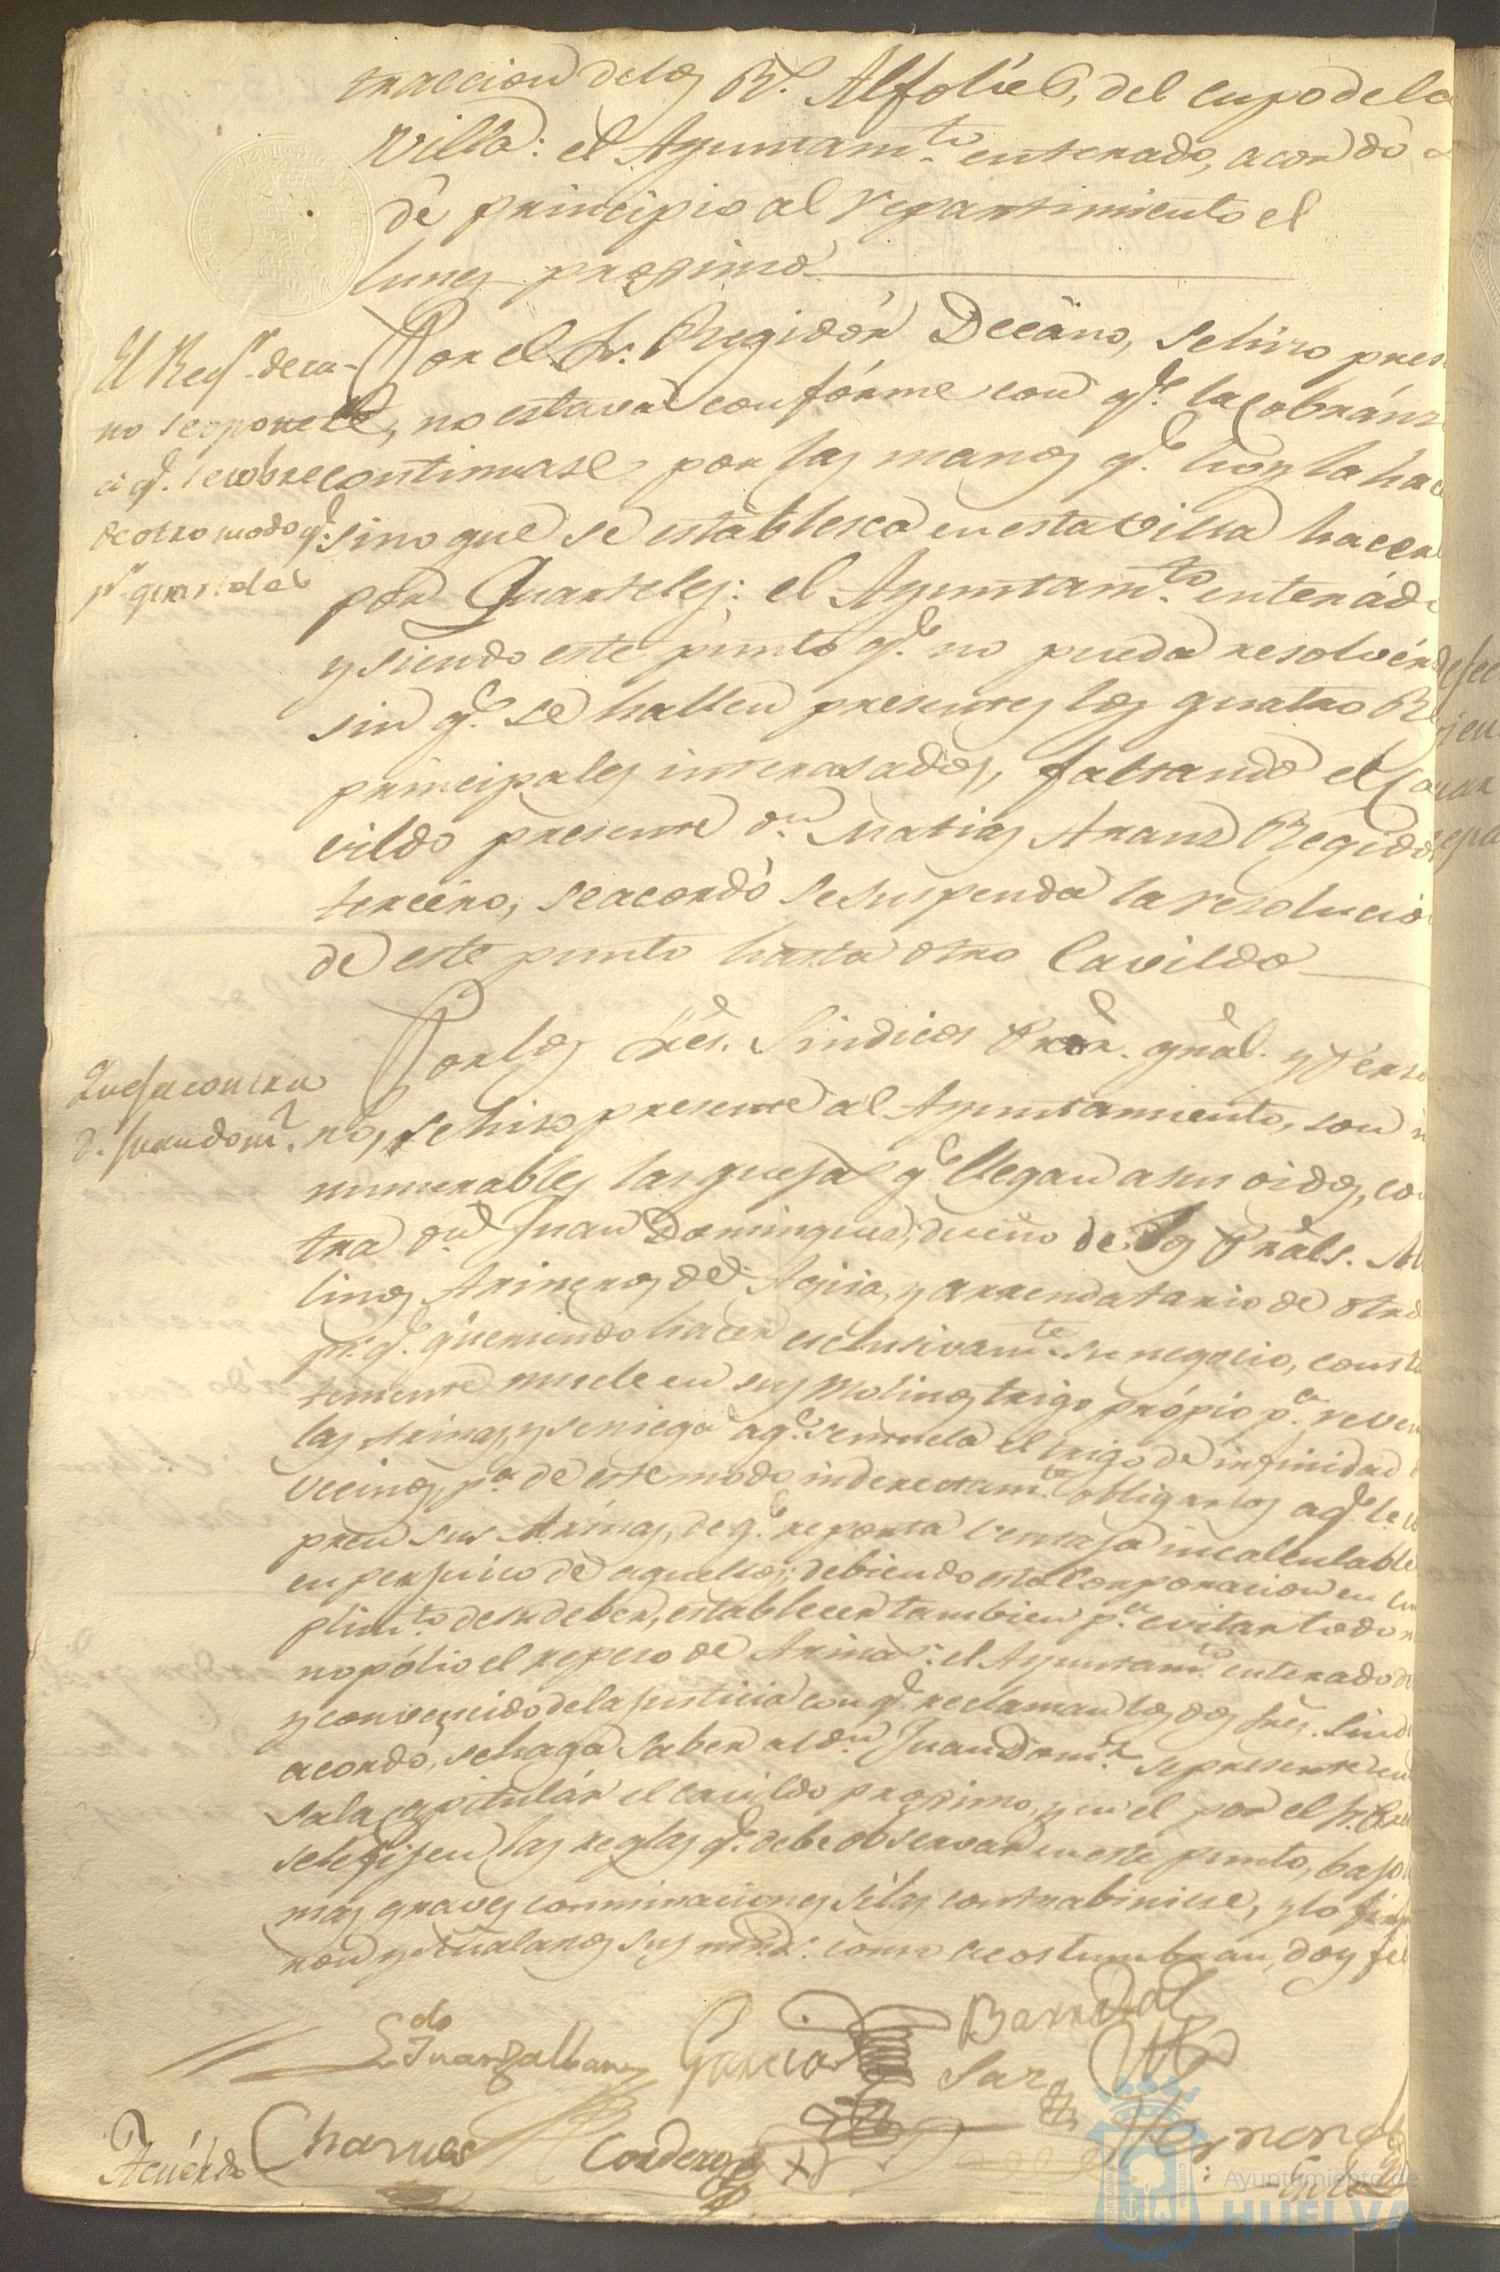 traccion de los Rs. Alfolíes, del cupo de la
Villa: el Ayuntamto. enterado, acordó
dé principio al repartimiento el
lunes proximo
El Regr. deca-
no se opone
a qe. se cobre
de otro modo qe.
pr. quarteles
Por el Sr. Regidór Decáno, se hizo pres
te, no estava confórme con qe. la cobránz
continuase por las manos qe. hoy la hac
sino que se establesca en esta Villa hacerl
por Quarteles: el Ayuntamto. enterádo
y siendo este punto qe. no pueda resolvér
sin qe. se hallen presentes los quatro R
principales interesados, faltando el
vildo presente dn. Matias Aranz Regidor
tercéro, se acordó se suspenda la resolució
de este punto hasta otro Cavildo
Quefa contra
D. Juan Domz.
Por los Sres. Sindicos Pror. gral. y Perso
no, se hizo presente al Ayuntamiento, son in
numerables las quejas qe. llegan a sus oidos, con
tra dn. Juan Dominguez, dueño de los Prals. Mo
linos Arineros de Agua, y arrendatario de otro
pr. qe. queriendo hacer esclusivamte. su negocio, consta
temente muele en sus Molinos trigo própio pa. reven
las Arinas, y se niega a qe. se muela el trigo de infinidad
vecinos, pa. de este modo inderectamte. obligarlos a qe. le
pren sus Arinas, de qe. reporta ventaja incalculable
en perjuicio de aquellos; debiendo esta Corporacion en cum
plimto. de su deber, establecer tambien pa. evitar todo
nopólio el repeso de Arina: el Ayuntamto. enterado
y convencido de la justicia con qe. reclaman los dos Sres. Sind
acordó, se haga saber al dn. Juan Domz. se presente en
sala capitulár el cavildo proximo, y en el por el Sr.
se le fijen las reglas qe. debe observar en este punto, bajo
mas graves conminaciones si las contrabiniese, y lo firm
ron y señalaron sus mrds. como acostumbran, doy fé
Barredal
Garcia
Saez
Chaves
Cordero
Acuérdo
Ayuntamiento de
HUELVA